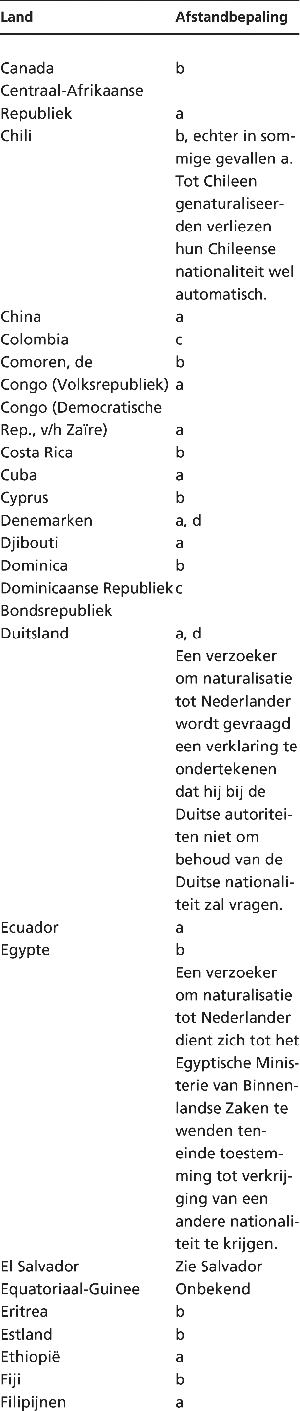 Land Afstandbepaling
Canada b
Centraal-Afrikaanse
Republiek a
Chili b, echter in som-
mige gevallen a.
Tot Chileen
genaturaliseer-
den verliezen
hun Chileense
nationaliteit wel
automatisch.
China a
Colombia c
Comoren, de b
Congo (Volksrepubliek) a
Congo (Democratische
Rep., v/h Zaïre) a
Costa Rica b
Cuba a
Cyprus b
Denemarken a, d
Djibouti a
Dominica b
Dominicaanse Republiek c
Bondsrepubliek
Duitsland a, d
Een verzoeker
om naturalisatie
tot Nederlander
wordt gevraagd
een verklaring te
ondertekenen
dat hij bij de
Duitse autoritei-
ten niet om
behoud van de
Duitse nationali-
teit zal vragen.
Ecuador a
Egypte b
Een verzoeker
om naturalisatie
tot Nederlander
dient zich tot het
Egyptische Minis-
terie van Binnen-
landse Zaken te
wenden ten-
einde toestem-
ming tot verkrij-
ging van een
andere nationali-
teit te krijgen.
El Salvador Zie Salvador
Equatoriaal-Guinee Onbekend
Eritrea b
Estland b
Ethiopië a
Fiji b
Filipijnen a